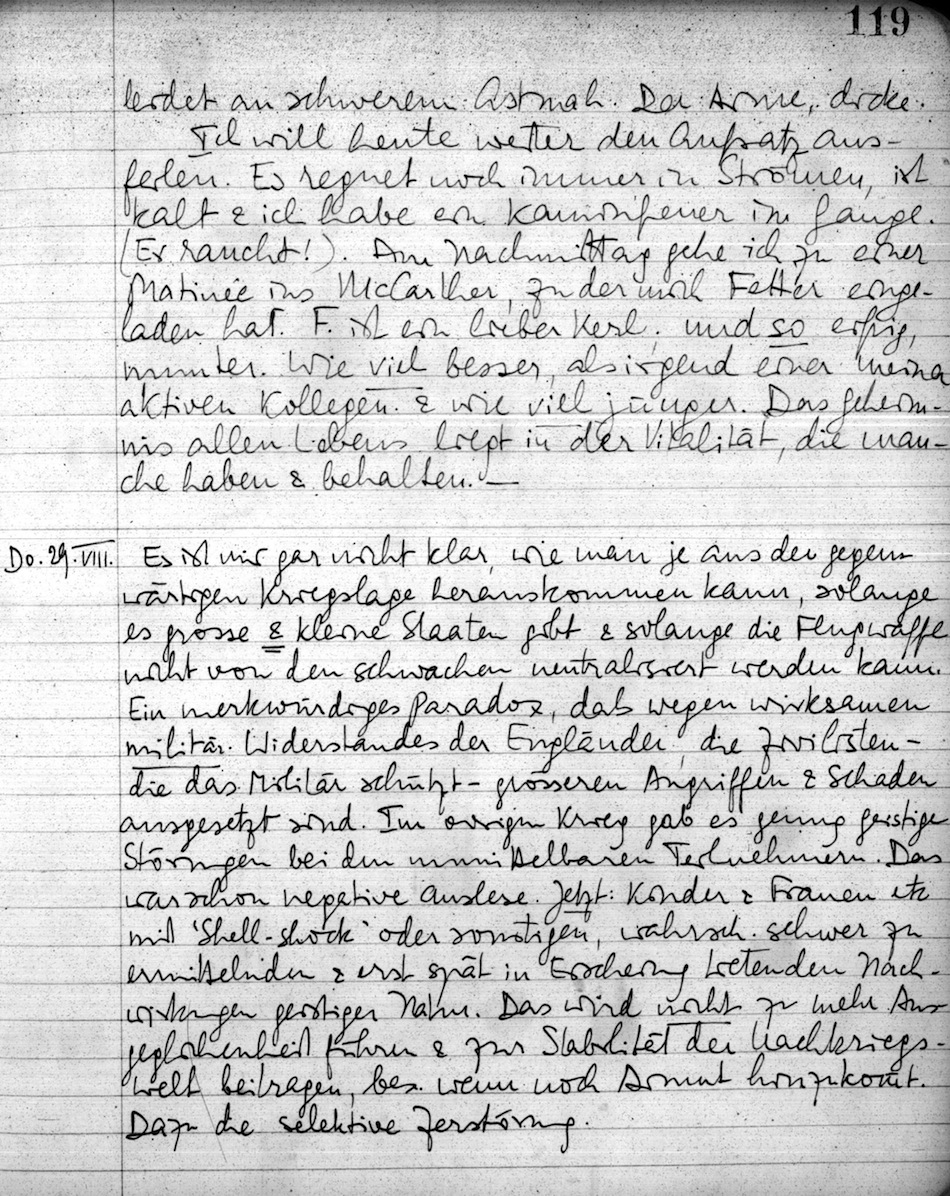 119
leidet an schwerem Astmah. Der Arme, dicke.
Ich will heute weiter den Aufsatz aus-
feilen. Es regnet noch immer in Strömen, ist
kalt & ich habe ein Kaminfeuer im Gange.
(Er raucht!). Am Nachmittag gehe ich zu einer
Matinée ins McCarther, zu der mich Fetter einge-
laden hat. F. ist ein lieber Kerl, und so eifrig,
munter. Wie viel besser, als irgend einer meiner
aktiven Kollegen. & wie viel jünger. Das Geheim-
nis allen Lebens liegt in der Vitalität, die man-
che haben & behalten. —
Do. 29. VIII. Es ist mir gar nicht klar, wie man je aus der gegen-
wärtigen Kriegslage herauskommen kann, solange
es grosse & kleine Staaten gibt & solange die Flugwaffe
nicht von den schwachen neutralisiert werden kann.
Ein merkwürdiges Paradox, dass wegen wirksamen
militär. Widerstandes der Engländer, die Zivilisten -
die das Militär schützt - grösseren Angriffen & Schaden
ausgesetzt sind. Im vorigen Krieg gab es genug geistige
Störungen bei den unmittelbaren Teilnehmern. Das
war schon negative Auslese. Jetzt: Kinder & Frauen etc
mit 'Shell-shock' oder sonstigen, wahrsch. schwer zu
ermittelnden & erst spät in Erscheing tretenden Nach-
wirkungen geistiger Natur. Das wird nicht zu mehr Aus
geglichenheit führen & zur Stabilität der Nachkriegs-
welt beitragen, bes. wenn noch Armut hinzukomt.
Dazu die selektive Zerstörung.